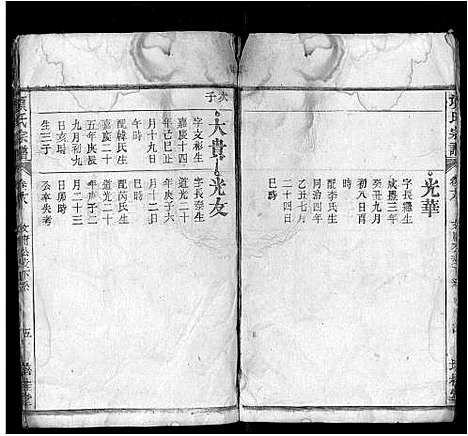 光華
字長癮生
咸豐三年
癸丑九月
初八日酉
時配李氏生
同治四年
乙丑七月
二十四日
巳時
次子
大貴
字文彬生
嘉慶十四
年己巳正
月十九日
巳時
配韓氏生
嘉慶二十
五年庚辰
九月初九
日亥時
生三子
光友
字長泰生
道光二十
年庚子六
月十二日
時
配芮氏生
道光二十
年庚子二
月二十三
日卯時
公卒失考
氏宗譜
卷六
五